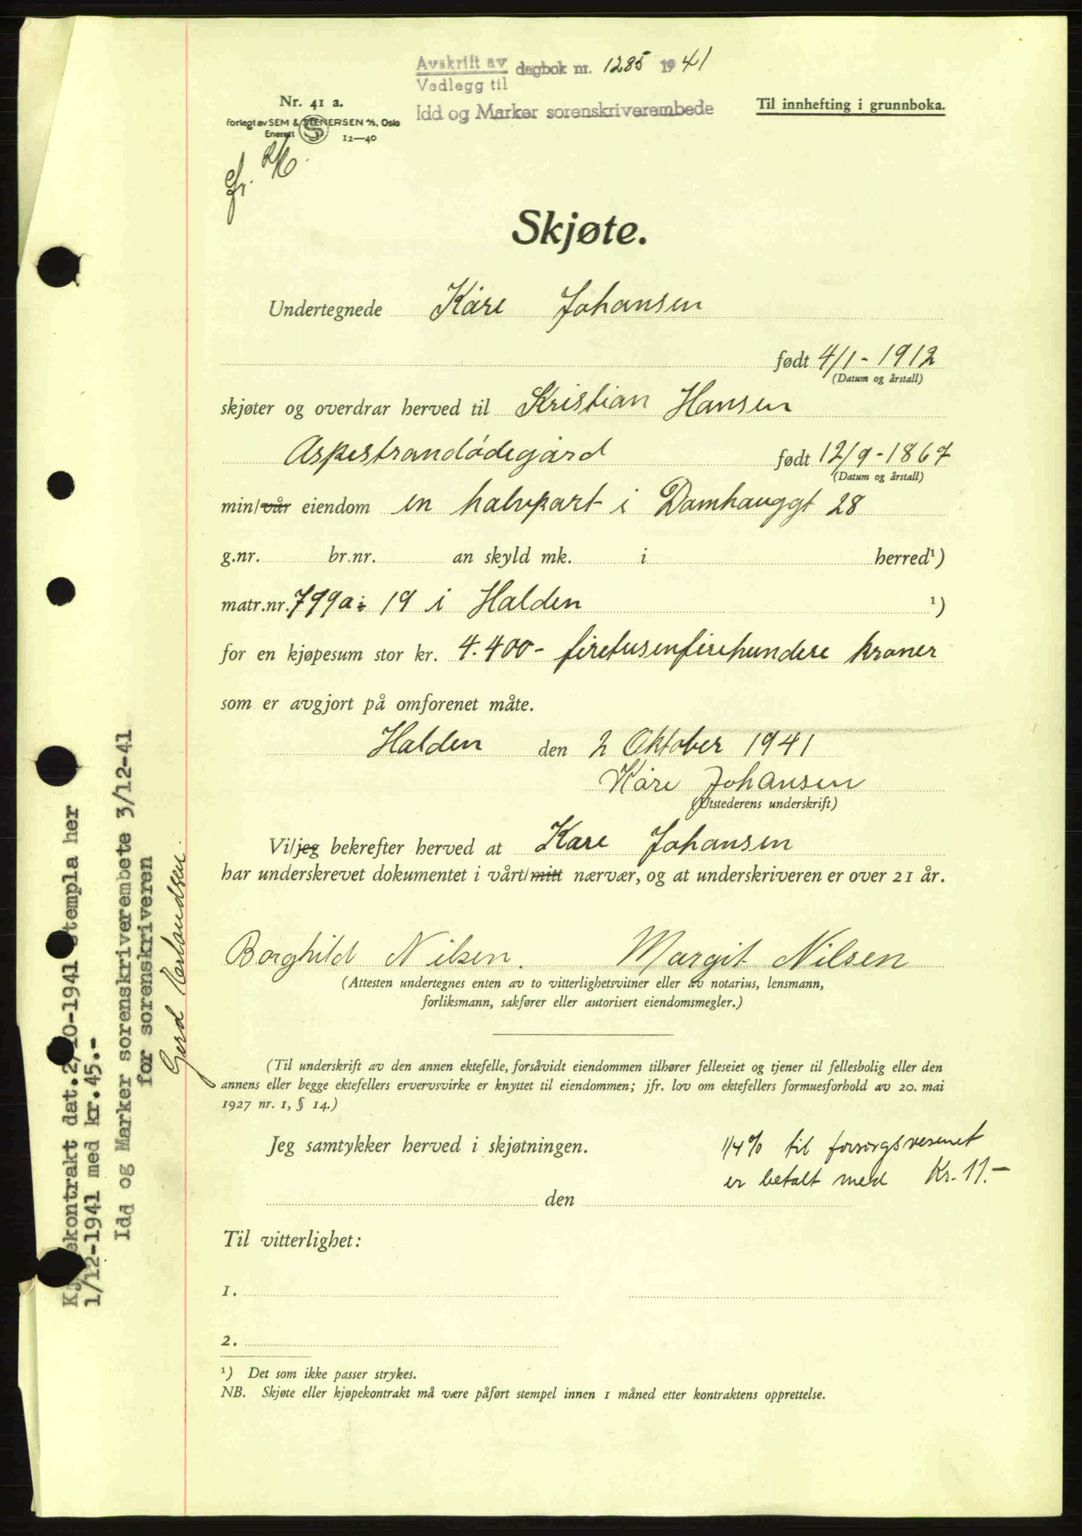 Avskrift av dagbok nr. 1285 1941
Vedlegg til
Idd og Marker sorenskriverembede
Nr. 41 a.
Forlagt av SEM & STENERSEN A/S, Oslo
Enerett 12—40
Til innhefting i grunnboka.
Skjøte.
Undertegnede Kåre Johansen
født 4/1 - 1912
(Datum og årstall)
skjøter og overdrar herved til Kristian Hansen
Aspestrandødegård født 12/9 - 1867
(Datum og årstall)
min/vår eiendom en halvpart i Damhauggt 28
g.nr. br.nr. an skyld mk. i herred¹)
matr.nr. 799a : 19 i Halden ¹)
for en kjøpesum stor kr. 4.400- firetusenfirehundre kroner
som er avgjort på omforenet måte.
Halden den 2 Oktober 1941
Kåre Johansen
(Utstederens underskrift)
Vi/jeg bekrefter herved at Kåre Johansen
har underskrevet dokumentet i vårt/mitt nærvær, og at underskriveren er over 21 år.
Borghild Nilsen. Margit Nilsen
(Attesten undertegnes enten av to vitterlighetsvitner eller av notarius, lensmann,
forliksmann, sakfører eller autorisert eiendomsmegler.)
(Til underskrift av den annen ektefelle, forsåvidt eiendommen tilhører felleseiet og tjener til fellesbolig eller den
annens eller begge ektefellers ervervsvirke er knyttet til eiendommen; jfr. lov om ektefellers formuesforhold av 20. mai
1927 nr. 1, § 14.)
Jeg samtykker herved i skjøtningen.
1/4% til forsorgsvesenet
er betalt med Kr. 11.-
den
Til vitterlighet:
1.
2.
¹) Det som ikke passer strykes.
NB. Skjøte eller kjøpekontrakt må være påført stempel innen 1 måned etter kontraktens opprettelse.
Kjøpekontrakt dat. 2/10-1941 stempla her
1/12-1941 med kr. 45.-
Idd og Marker sorenskriverembete 3/12-41
for sorenskriveren
Gerd